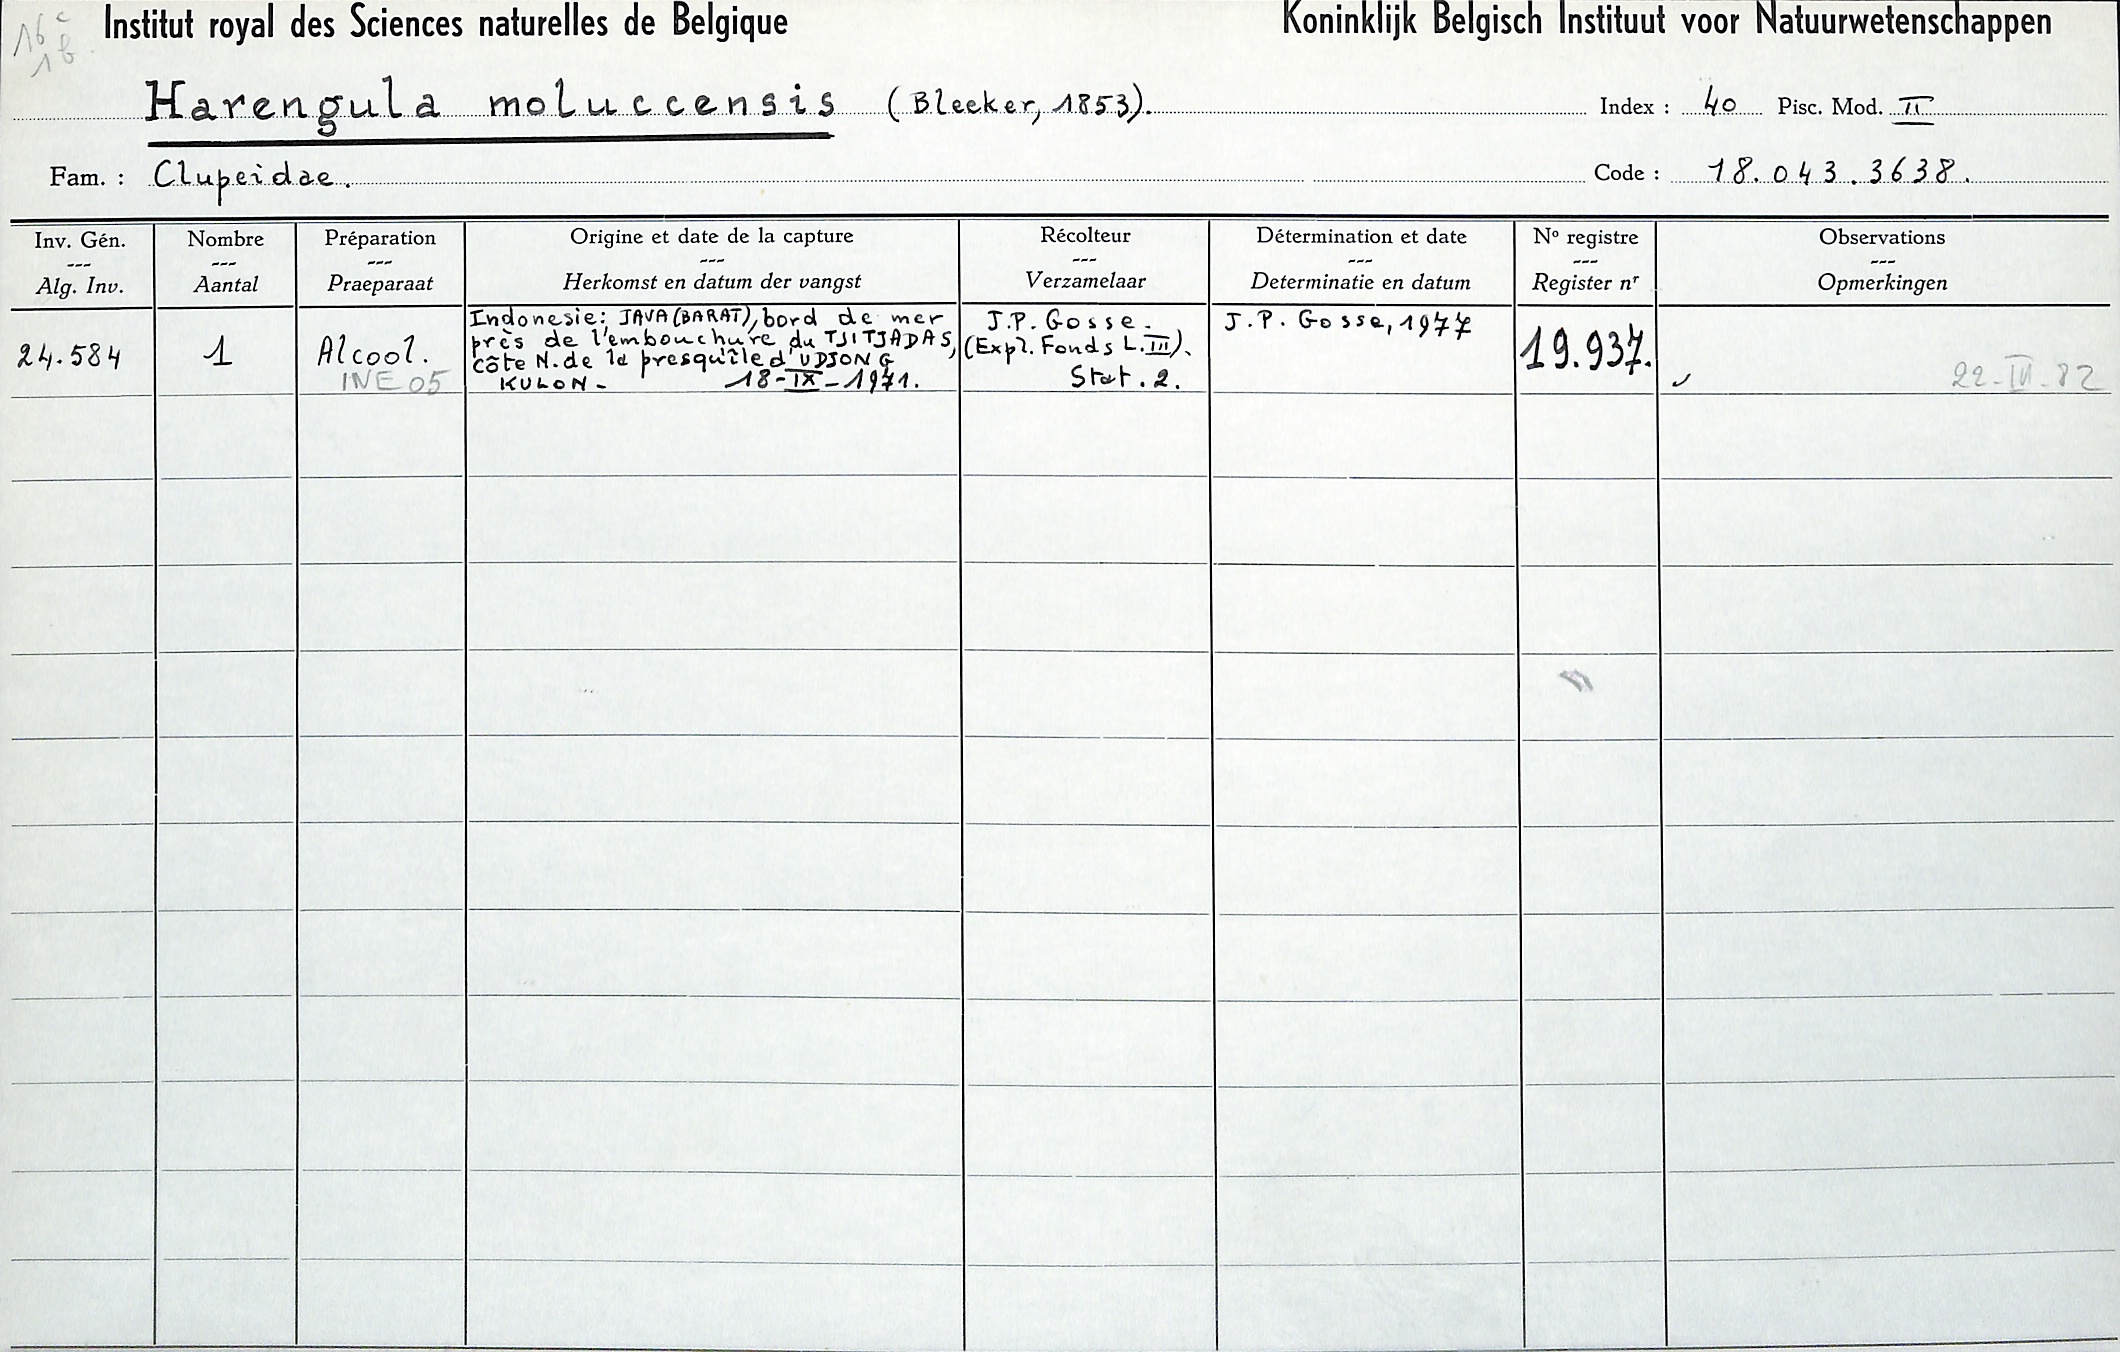 16 c
1 b.
Institut royal des Sciences naturelles de Belgique
Koninklijk Belgisch Instituut voor Natuurwetenschappen
Harengula moluccensis (Bleeker, 1853).
Index : 40 Pisc. Mod. II
Fam. : Clupeidae.
Code : 18.043.3638.
Inv. Gén.
---
Alg. Inv.
Nombre
---
Aantal
Préparation
---
Praeparaat
Origine et date de la capture
---
Herkomst en datum der vangst
Récolteur
---
Verzamelaar
Détermination et date
---
Determinatie en datum
Nº registre
---
Register nr
Observations
---
Opmerkingen
24.584
1
Alcool.
INE 05
Indonesie: JAVA (BARAT), bord de mer
près de l'embouchure du TJITJADAS,
côte N. de la presqu'île d'UDJONG
KULON - 18-IX-1971.
J.P. Gosse.
(Expl. Fonds L.III).
Stat. 2.
J.P. Gosse, 1977
19.937.
22-III-82